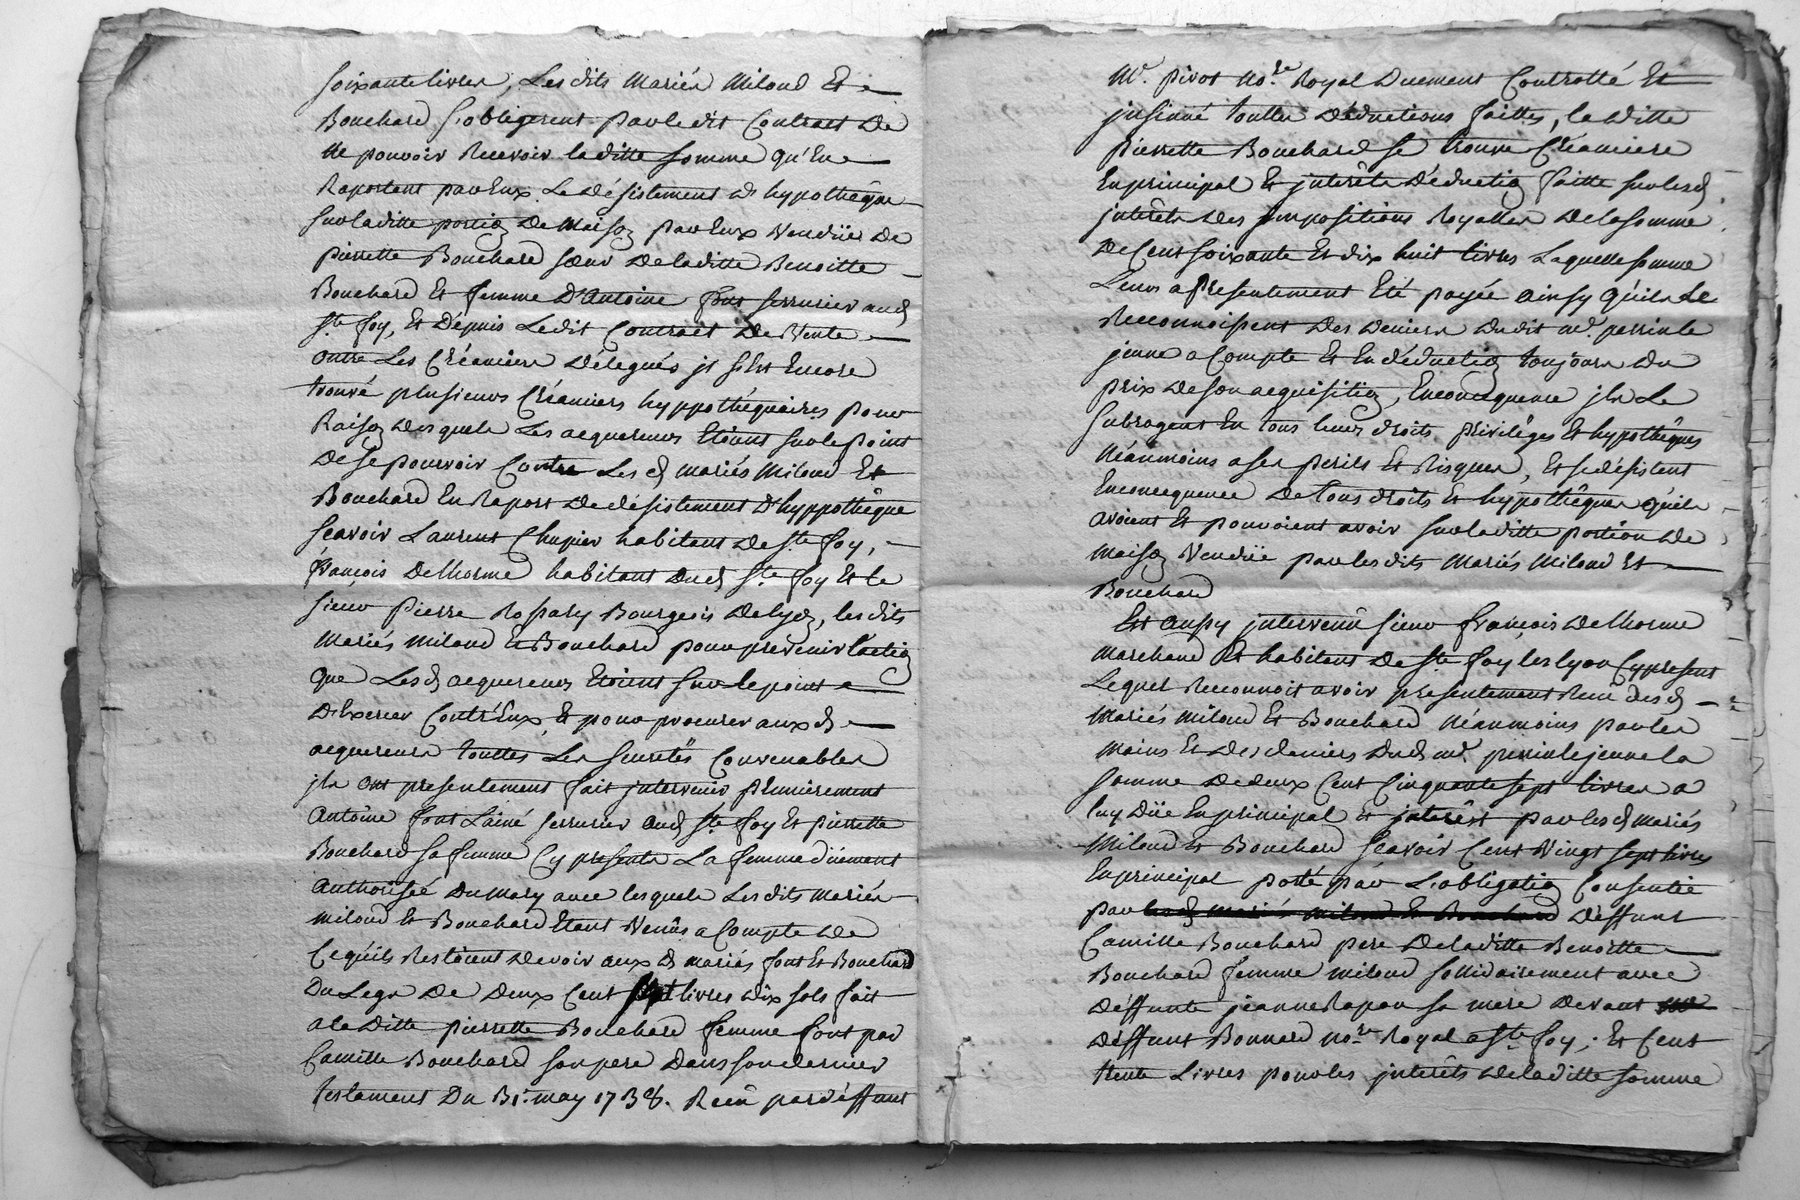 soixante livres, Les dits Mariés Miloud Et
Bouchard s'obligerent par le dit Contract De
Ne pouvoir Recevoir laditte somme qu'En
Raportant par Eux Le désistement d'hypothêque
sur laditte portion De Maison par Eux Vendüe De
pierrette Bouchard soeur De laditte Benoitte
Bouchard Et femme D'Antoine font serrurier aud
ste foy, Et Dépuis Ledit Contract De Vente
outre Les Créanciers Délegués jl s'Est Encore
trouvé plusieurs Créanciers hyppothéquaires pour
Raison desquels Les acquereurs Etòient sur le point
De se pourvoir Contre Les d mariés Miloud Et
Bouchard En Raport De désistement D'hyppothêque
scavoir Laurent Chupier habitant De Ste foy,
françois Delhorme habitant Dud Ste foy Et le
sieur pierre Rospary Bourgeois De lyon, les dits
Mariés Miloud et Bouchard pour prevenir l'action
que Les d acquereurs Etoient sur le point
D'Exercer Contr'Eux, Et pour procurer aux d
acquereurs touttes Les suretés Convenables
jls ont presentement fait intervenir premierement
Antoine font L'ainé serrurier aud Ste foy Et pierrette
Bouchard sa femme Cy presents La femme düement
Authorisée Du Mary avec lesquels Les dits Mariés
miloud Et Bouchard Etant Venûs a Compte de
Ce qu'ils Restoient devoir aux d mariés font Et Bouchard
Du Legs De Deux Cent sept livres dix sols fait
a la Ditte pierrette Bouchard femme font par
Camille Bouchard son pere Dans son dernier
testament Du 31. may 1738. Reçû par déffunt
Mr. pivot Nore Royal Duement Controllé Et
jnsinüé touttes Déductions faittes, la ditte
pierrette Bouchard se trouve Créanciere
En principal Et jnterêts Déduction faitte sur lesd
jnterêts Des jmpositions Royalles De la somme
De Cent soixante Et dix huit livres Laquelle somme
Leurs a presentement Eté payée ainsy qu'ils Le
Reconnoissent Des Deniers Dudit mr. perrin le
jeune a Compte Et En déduction toujours Du
prix De son acquisition, En consequence jls Le
subrogent En tous leurs droits privilêges Et hypothêques
Néanmoins a ses perils Et Risques, Et se désistent
En concequence De tous droits Et hypothêques qu'ils
avoient Et pouvoient avoir sur laditte portion De
maison Vendüe par les dits Mariés Miloud Et
Bouchard
Est aussy jntervenû sieur françois Delhorme
Marchand Et habitant De Ste foy les lyon Cy present
Lequel Reconnoit avoir presentement Recû des d
Mariés Miloud Et Bouchard Néanmoins par les
mains Et Des deniers Dud mr. perrin le jeune la
somme De deux Cent Cinquante sept livres a
luy Düe En principal Et jnterêst par les d mariés
Miloud Et Bouchard scavoir Cent Vingt sept livres
En principal porté par L'obligation Consentie
par les d mariés miloud Et Bouchard Déffunt
Camille Bouchard pere De laditte Benoitte
Bouchard femme miloud sollidairement avec
déffunte jeanne Rapou sa mere devant
Déffunt Bonnard nore Royal a Ste foy; Et Cent
trente Livres pour les jnterêts De laditte somme